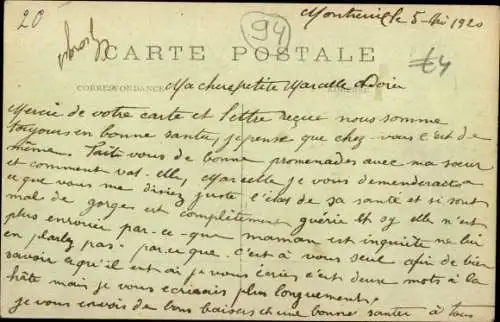 20
94
Montreuil le 5 Mai 1920
CARTE POSTALE
£4
CORRESPONDANCE
Ma chere petite Marcelle
Mercie de votre carte et lettre reçue nous somme
toujours en bonne santer, je pense que chez vous c'est de
même. faite vous de bonne promenades avec ma sœur
et comment vas-elle, Marcelle je vous demenderai
ce que vous me diriez juste l'état de sa santé et si sont
mal de gorges est complêtement guérie et sy elle n'est
plus enrouer par-ce-que maman est inquiète ne lui
en parlez pas par-ce-que c'est à vous seul afin de bien
savoir ce qu'il est où je vous écris c'est deux mots à la
hâte mais je vous ecrirais plus longuement.
je vous envois de bons baisers et une bonne santer à tous